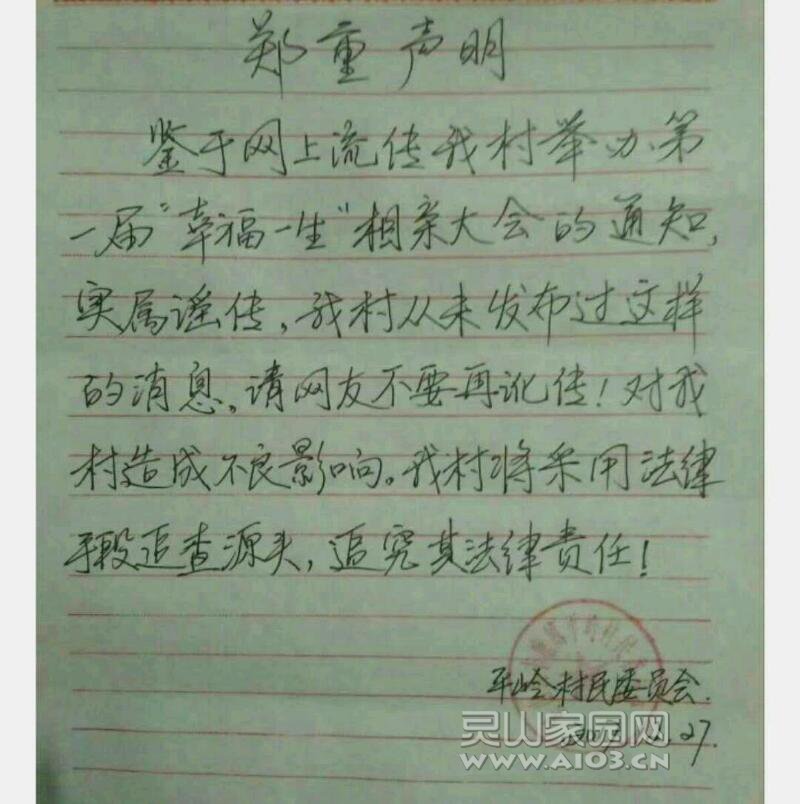 郑重声明
鉴于网上流传我村举办第
一届"幸福一生"相亲大会的通知，
实属谣传，我村从未发布过这样
的消息。请网友不要再讹传！对我
村造成不良影响。我村将采用法律
手段追查源头，追究其法律责任！
平岭村民委员会.
27.
灵山家园网
WWW.AI03.CN